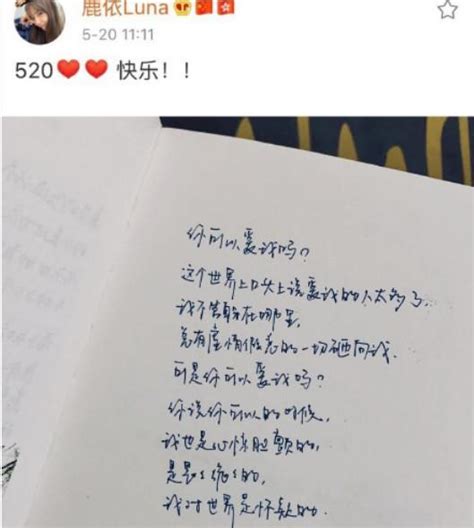 鹿依Luna
5-20 11:11
520❤️❤️ 快乐！！
你可以爱我吗?
这个世界上口头上说爱我的人太多了.
我不管躲在哪里,
总有虚情假意的一切砸向我.
可是你可以爱我吗?
你说你可以的时候,
我也是心惊胆颤的,
是 的,
我对世界是怀疑的.